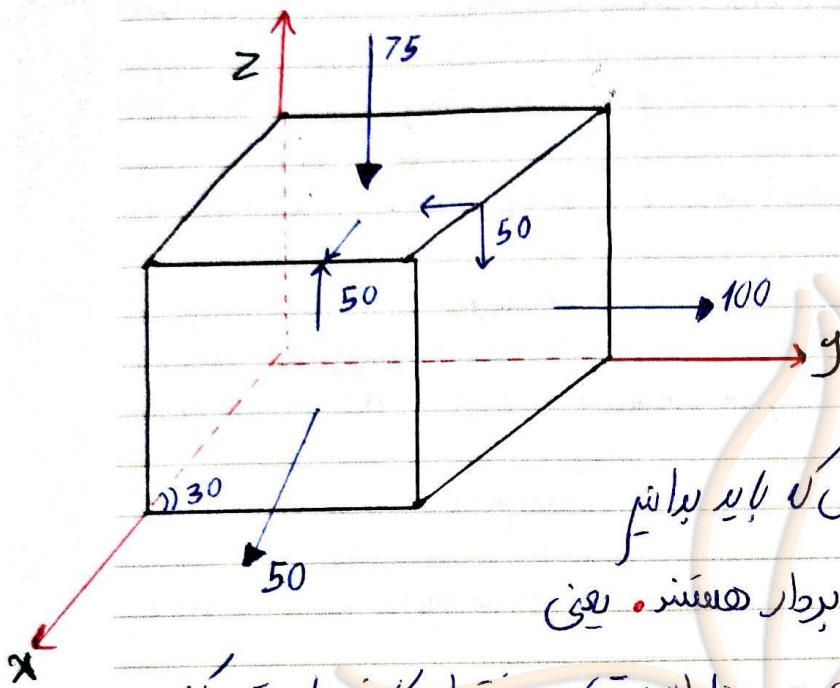 Z
75
50
50
100
y
)) 30
50
x
که باید بدانیم
بردار هستند. یعنی